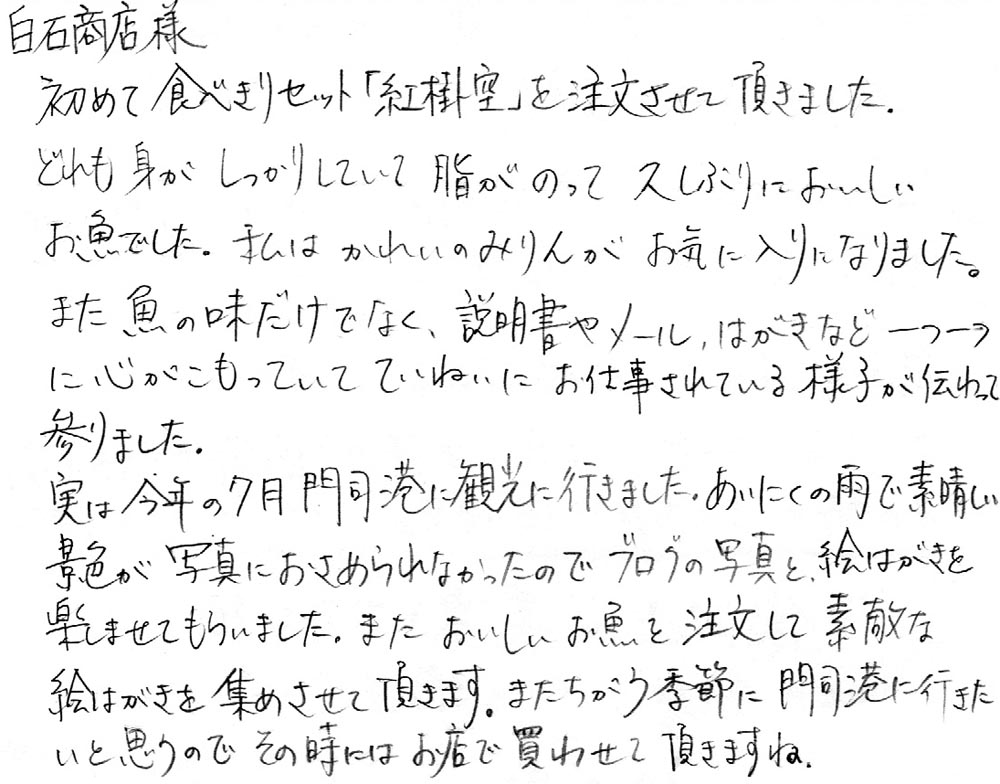 白石商店様
初めて食べきりセット「紅掛空」を注文させて頂きました.
どれも身がしっかりしていて脂がのって久しぶりにおいしい
お魚でした。私はかれいのみりんがお気に入りになりました。
また魚の味だけでなく、説明書やメール,はがきなど一つ一つ
に心がこもっていてていねいにお仕事されている様子が伝わって
参りました.
実は今年の7月門司港に観光に行きました.あいにくの雨で素晴しい
景色が写真におさめられなかったのでブログの写真と、絵はがきを
楽しませてもらいました.またおいしいお魚を注文して素敵な
絵はがきを集めさせて頂きます.またちがう季節に門司港に行きた
いと思うのでその時にはお店で買わせて頂きますね.